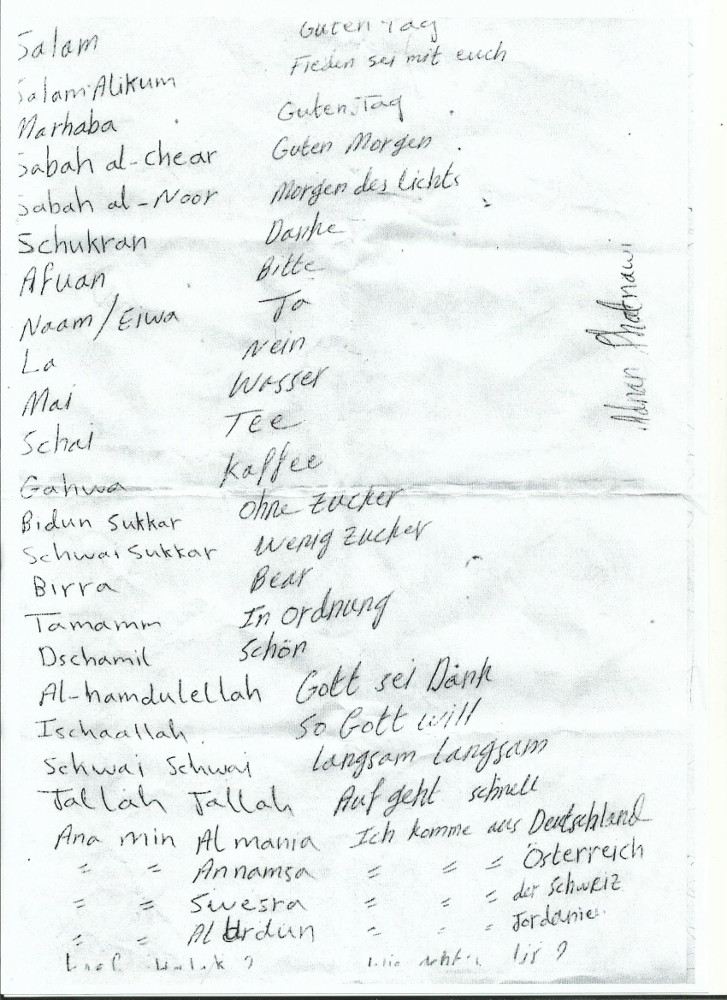 Salam Guten Tag
Salam Alikum Frieden sei mit euch
Marhaba Guten Tag
Sabah al-chear Guten Morgen
Sabah al-Noor Morgen des lichts
Schukran Danke
Afuan Bitte
Naam/Eiwa Ja
La Nein
Mai Wasser
Schai Tee
Gahwa Kaffee
Bidun Sukkar Ohne Zucker
Schwai Sukkar Wenig Zucker
Birra Bear
Tamamm In Ordnung
Dschamil Schön
Al-hamdulellah Gott sei Dank
Ischaallah So Gott will
Schwai Schwai langsam langsam
Jallah Jallah Auf geht schnell
Ana min Almania Ich komme aus Deutschland
= = Annamsa = = = Österreich
= = Swesra = = = der Schweiz
= = Al Urdun = = = Jordanie
Adnan